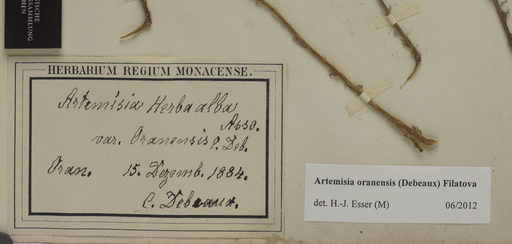 TISCHE
SSAMMLUNG
HEN
HERBARIUM REGIUM MONACENSE.
Artemisia Herba alba
Asso.
var. Oranensis C. Deb.
Oran. 15. Dezemb. 1884.
C. Debeaux.
Artemisia oranensis (Debeaux) Filatova
det. H.-J. Esser (M) 06/2012